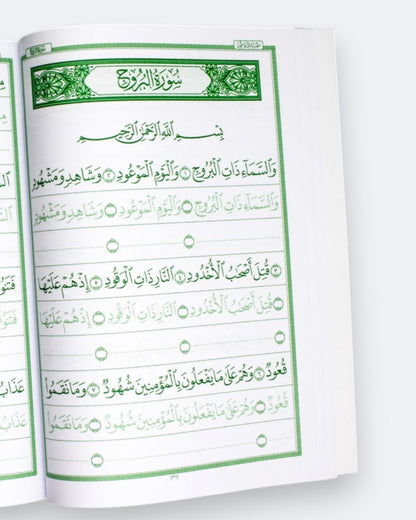 سُورَةُ البُرُوجِ
بِسْمِ اللَّهِ الرَّحْمَٰنِ الرَّحِيمِ
وَالسَّمَاءِ ذَاتِ الْبُرُوجِ ١ وَالْيَوْمِ الْمَوْعُودِ ٢ وَشَاهِدٍ وَمَشْهُودٍ
وَالسَّمَاءِ ذَاتِ الْبُرُوجِ وَالْيَوْمِ الْمَوْعُودِ وَشَاهِدٍ وَمَشْهُودٍ
٣ قُتِلَ أَصْحَٰبُ الْأُخْدُودِ ٤ النَّارِ ذَاتِ الْوَقُودِ ٥ إِذْ هُمْ عَلَيْهَا
قُتِلَ أَصْحَٰبُ الْأُخْدُودِ النَّارِ ذَاتِ الْوَقُودِ إِذْ هُمْ عَلَيْهَا
قُعُودٌ ٦ وَهُمْ عَلَىٰ مَا يَفْعَلُونَ بِالْمُؤْمِنِينَ شُهُودٌ ٧ وَمَا نَقَمُوا
قُعُودٌ وَهُمْ عَلَىٰ مَا يَفْعَلُونَ بِالْمُؤْمِنِينَ شُهُودٌ وَمَا نَقَمُوا